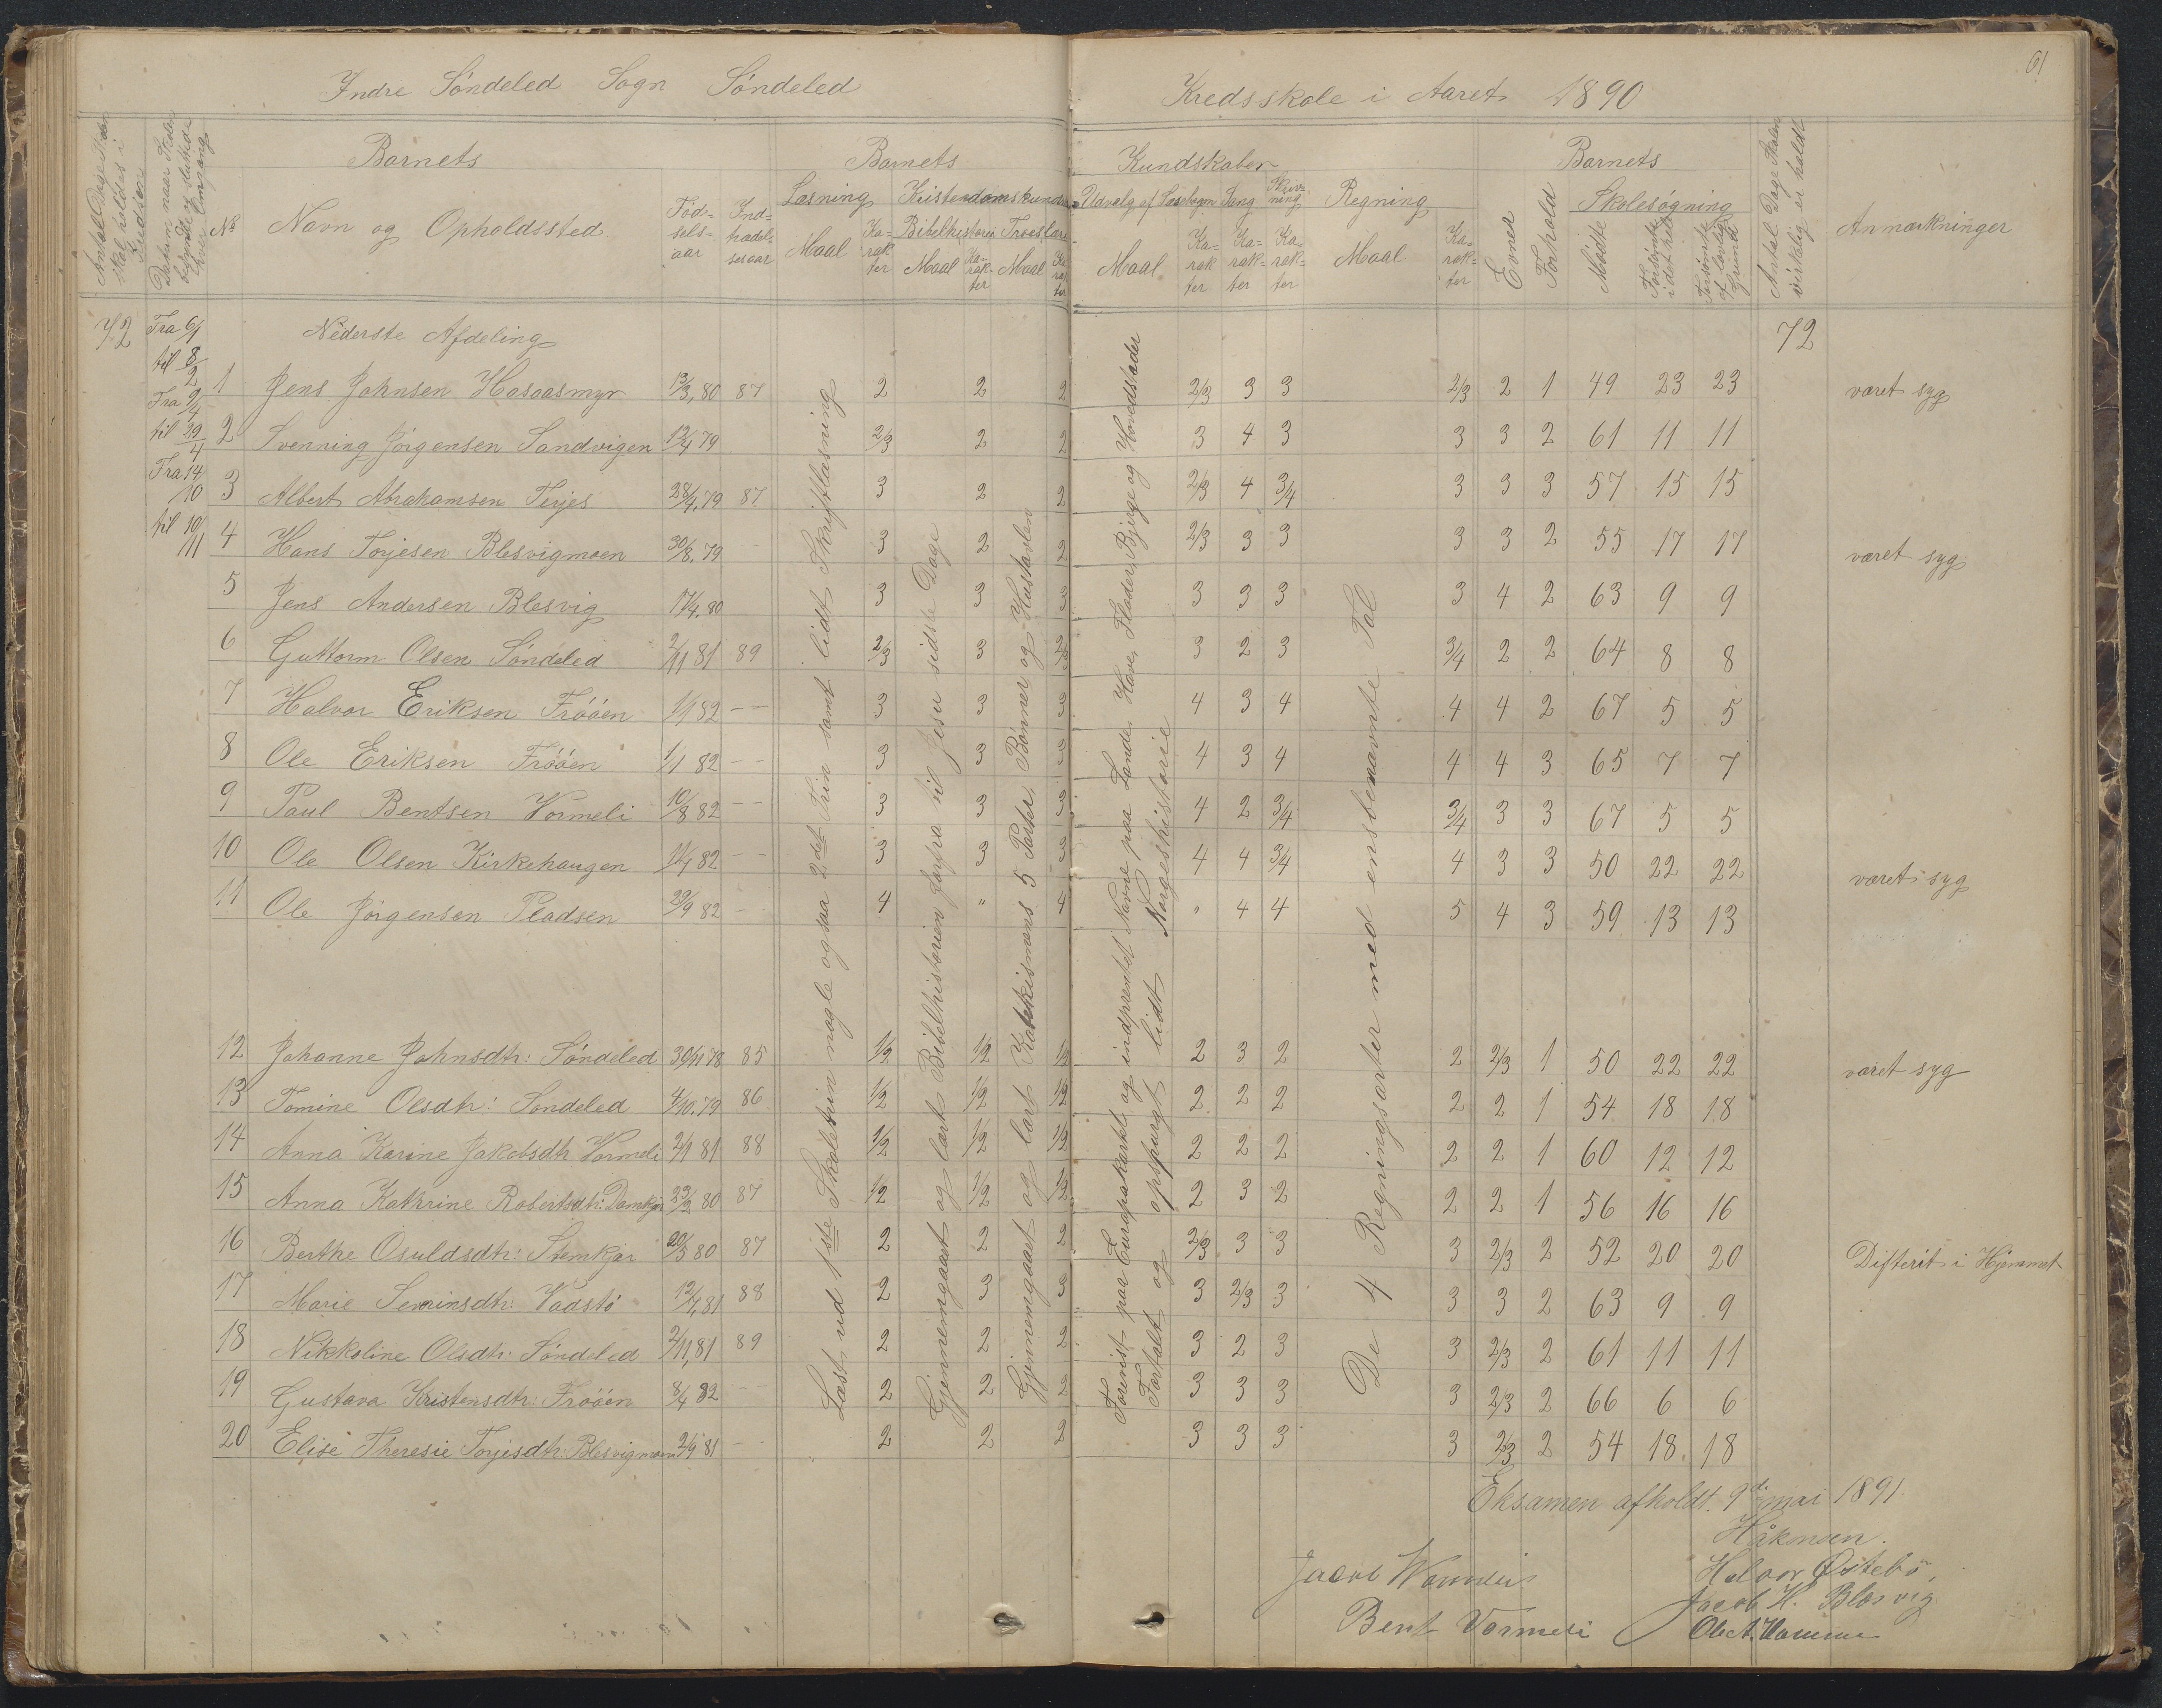 61
Indre Söndeled Sogn Söndeled Kredsskole i Aaret 1890
Antal Dage Skolen skal holdes i Kredsen
Datum naar Skolen begyndte og sluttede hver Omgang
No
Barnets
Navn og Opholdssted
Fødselsaar
Indtrædelsesaar
Barnets Kundskaber
Læsning
Maal
Karakter
Kristendomskundskab
Bibelhistorie
Maal
Karakter
Troeslære
Maal
Karakter
Udvalg af Læsebogen
Maal
Karakter
Sang
Karakter
Skrivning
Karakter
Regning
Maal
Karakter
Barnets
Evner
Forhold
Skolesøgning
Mødte
Forsømte i det hele
Forsømte af lovlig Grund
Antal Dage Skolen virkelig er holdt
Anmærkninger
72
Fra 6/1
til 8/2
Fra 9/4
til 29/4
Fra 14/10
til 10/11
72
Nederste Afdeling
1 Jens Johnsen Hasaasmyr 13/3,80 87 2 2 2 2/3 3 3 2/3 2 1 49 23 23 været syg
2 Svenning Jørgensen Sandvigen 12/4 79 2/3 2 2 3 4 3 3 3 2 61 11 11
3 Albert Abrahamsen Terjes 28/4,79 87 3 2 2 2/3 4 3/4 3 3 3 57 15 15
4 Hans Torjesen Blesvigmoen 30/8,79 3 2 2 2/3 3 3 3 3 2 55 17 17 været syg
5 Jens Andersen Blesvig 17/4.80 3 3 3 3 3 3 3 4 2 63 9 9
6 Guttorm Olsen Söndeled 2/11 81 89 2/3 3 2/3 3 2 3 3/4 2 2 64 8 8
7 Halvor Eriksen Frööen 1/1 82 -- 3 3 3 4 3 4 4 4 2 67 5 5
8 Ole Eriksen Frööen 1/1 82 -- 3 3 3 4 3 4 4 4 3 65 7 7
9 Paul Bentsen Vormeli 10/8 82 -- 3 3 3 4 2 3/4 3/4 3 3 67 5 5
10 Ole Olsen Kirkehaugen 1/4 82 -- 3 3 3 4 4 3/4 4 3 3 50 22 22 været syg
11 Ole Jørgensen Pladsen 29/9 82 - 4 " 4 " 4 4 5 4 3 59 13 13
12 Johanne Johnsdtr: Söndeled 30/11 78 85 1/2 1/2 1/2 2 3 2 2 2/3 1 50 22 22 været syg
13 Tomine Olsdtr: Söndeled 4/10.79 86 1/2 1/2 1/2 2 2 2 2 2 1 54 18 18
14 Anna Karine Jakobsdtr Vormeli 2/1 81 88 1/2 1/2 1/2 2 2 2 2 2 1 60 12 12
15 Anna Kathrine Robertsdtr: Damkjær 23/2 80 87 1/2 1/2 1/2 2 3 2 2 2 1 56 16 16
16 Berthe Osuldsdtr: Stemkjær 20/5 80 87 2 2 2 2/3 3 3 3 2/3 2 52 20 20 Difterit i Hjemmet
17 Marie Severinsdtr: Vadstö 12/4 81 88 2 3 3 3 2/3 3 3 3 2 63 9 9
18 Nikkoline Olsdtr: Söndeled 2/11,81 89 2 2 2 3 2 3 3 2/3 2 61 11 11
19 Gustava Kristensdtr: Frööen 8/4 82 -- 2 2 2 3 3 3 3 2/3 2 66 6 6
20 Elise Theresie Torjesdtr: Blesvigmoen 2/9 81 -- 2 2 2 3 3 3 3 2/3 2 54 18 18
Læst ved 1ste Skoletrin nogle ogsaa 2det Trin samt lidt Skriftlæsning
Gjennemgaaet og lært Bibelhistorien forfra til Jesu sidste Dage
Gjennemgaaet og lært Katekismens 5 Parter, Bønner og Hustavlen
Forevist paa Europakartet og indprentet Navne paa Lande, Have, Floder, Bjerge og Hovedstæder
Fortalt og opspurgt lidt Norgeshistorie
De 4 Regningsarter med ensbenævnte Tal
Eksamen afholdt 9de mai 1891.
Håkonsen.
Jacob Wormeli Halvor Östebö,
Jacob H. Blesvig
Bent Vormeli Ole A.